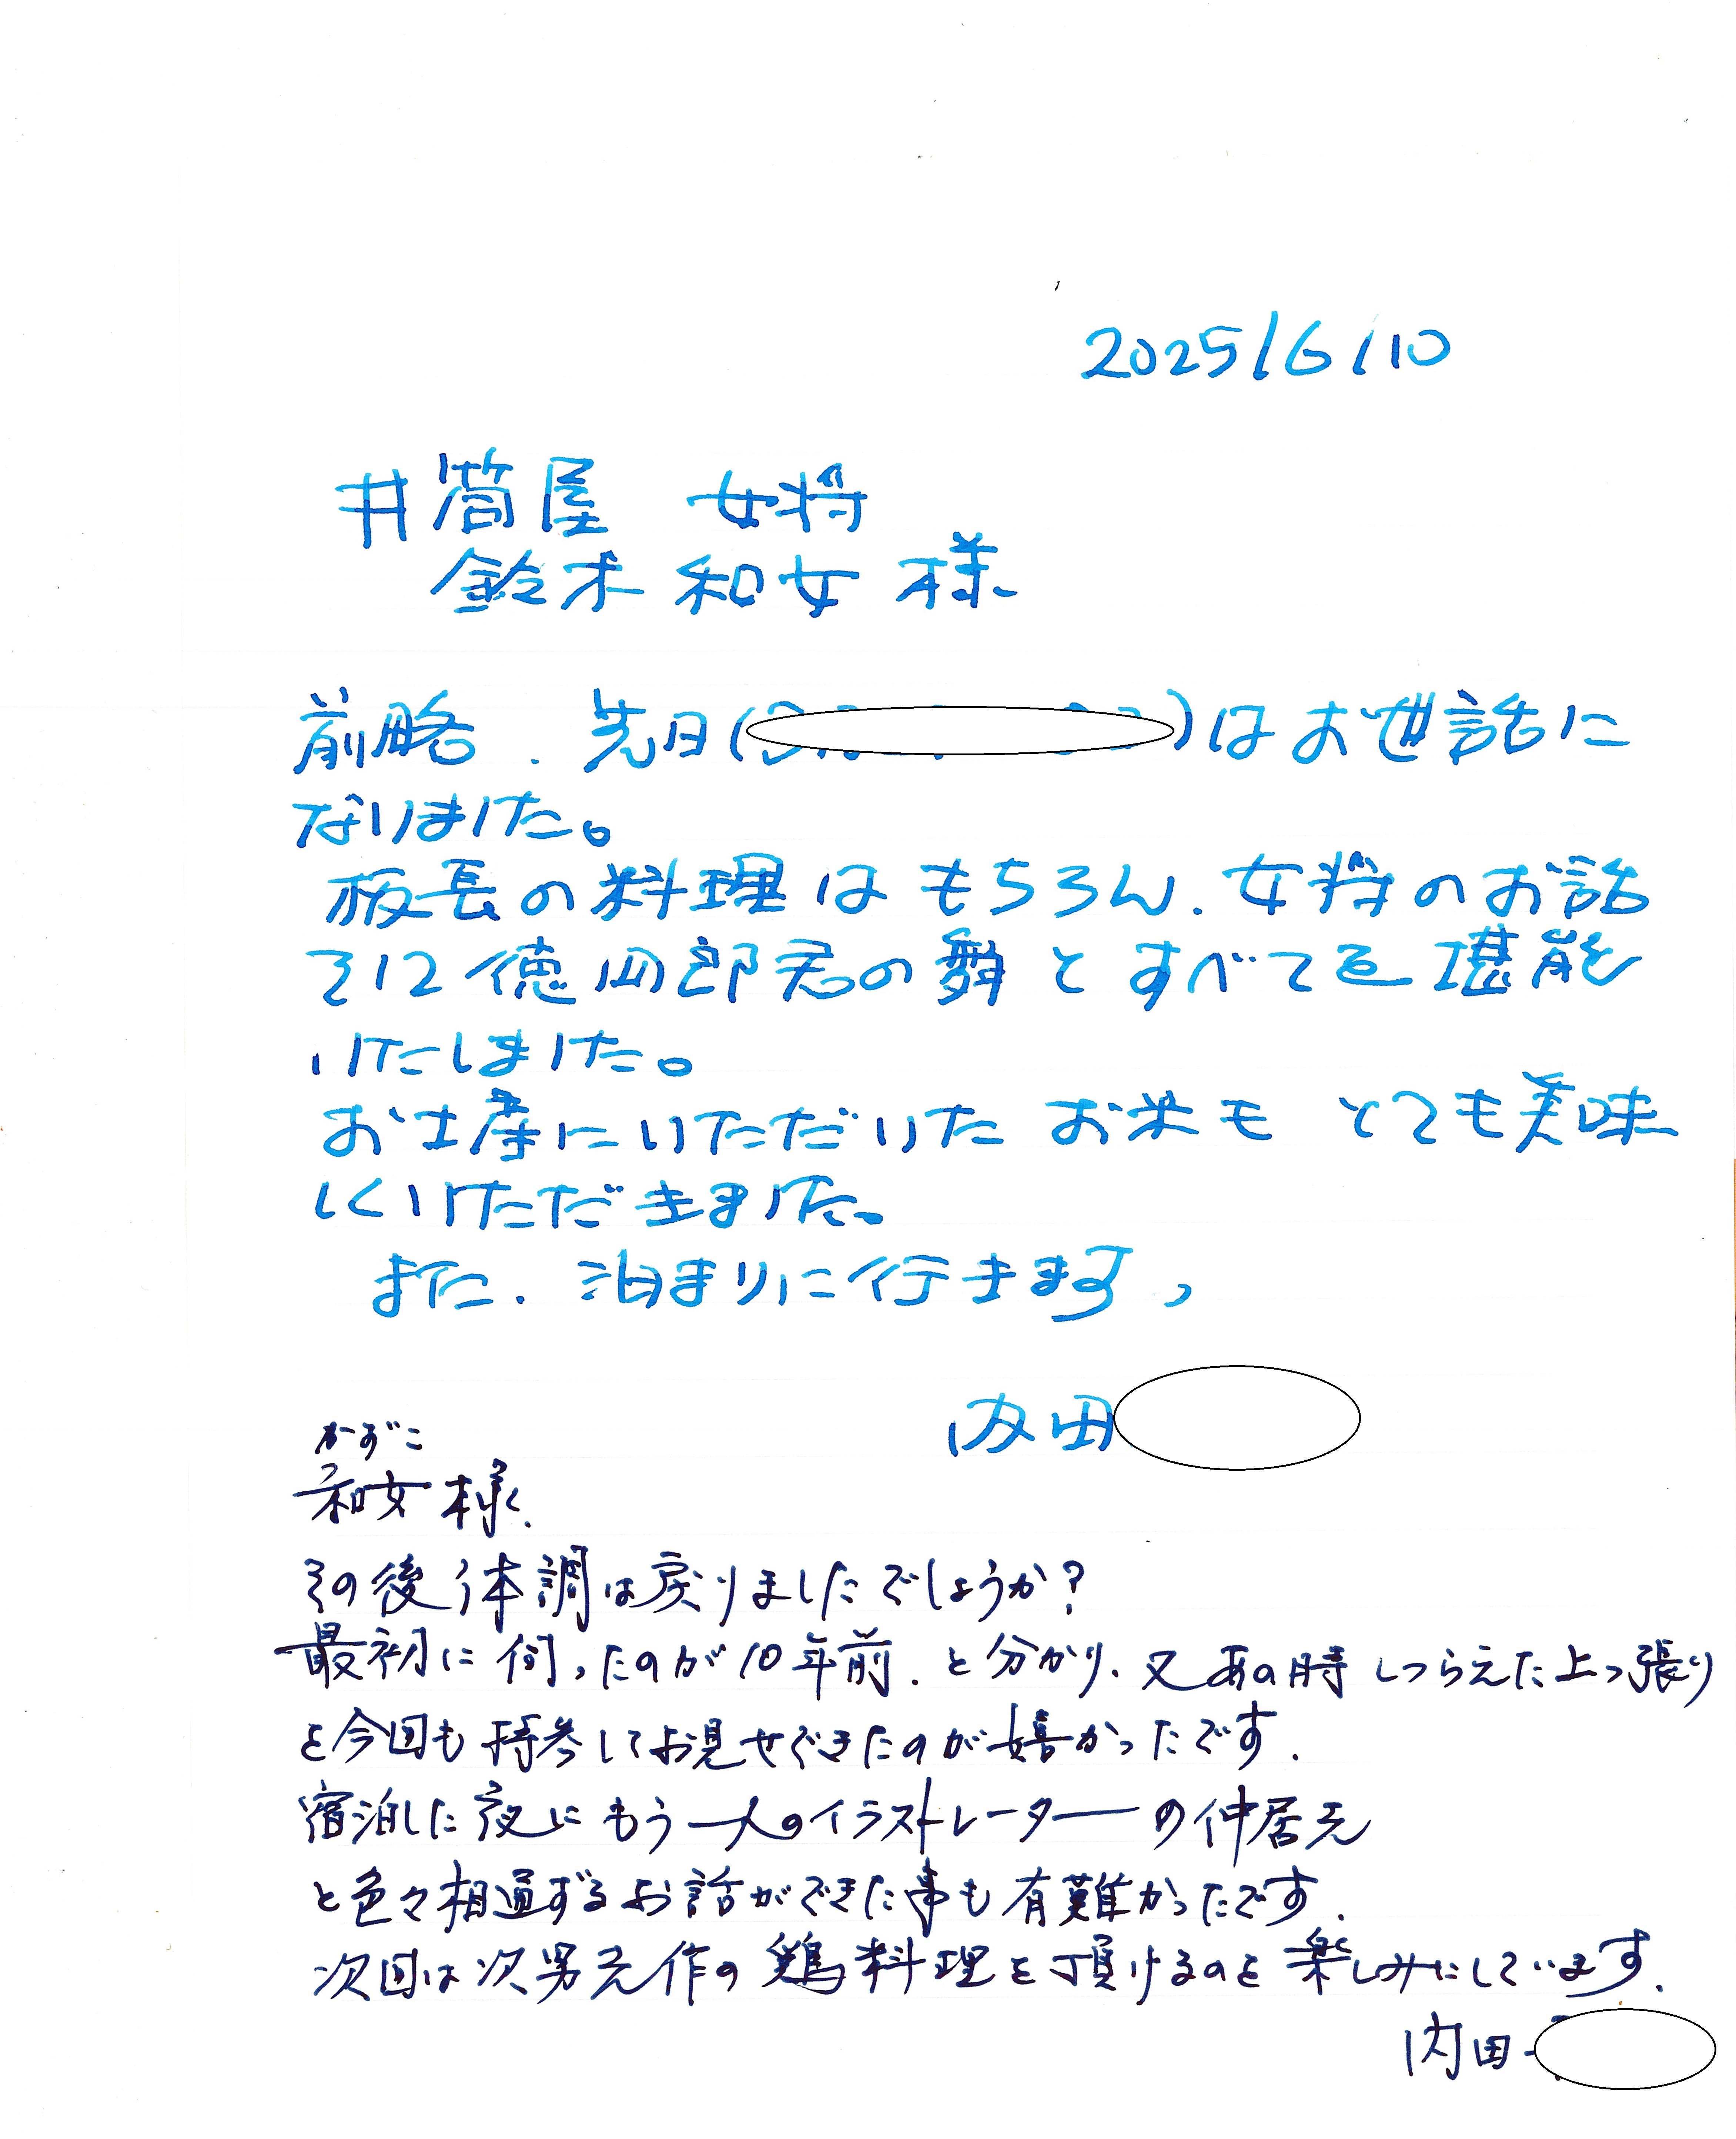 2025/6/10
井筒屋 女将
鈴木和女様
前略．先日( )はお世話に
なりました。
板長の料理はもちろん．女将のお話
そして徳四郎君の舞とすべてを堪能
いたしました。
お土産にいただいたお米もとても美味
しくいただきました。
また．泊まりに行きます、
内田
かずこ
和女様．
その後体調は戻りましたでしょうか？
最初に伺ったのが10年前．と分かり、又あの時しつらえた上っ張り
を今回も持参してお見せできたのが嬉かったです．
宿泊した夜にもう一人のイラストレーターの仲居さん
と色々相通ずるお話ができた事も有難かったです．
次回は次男さん作の鶏料理を頂けるのを楽しみにしています．
内田